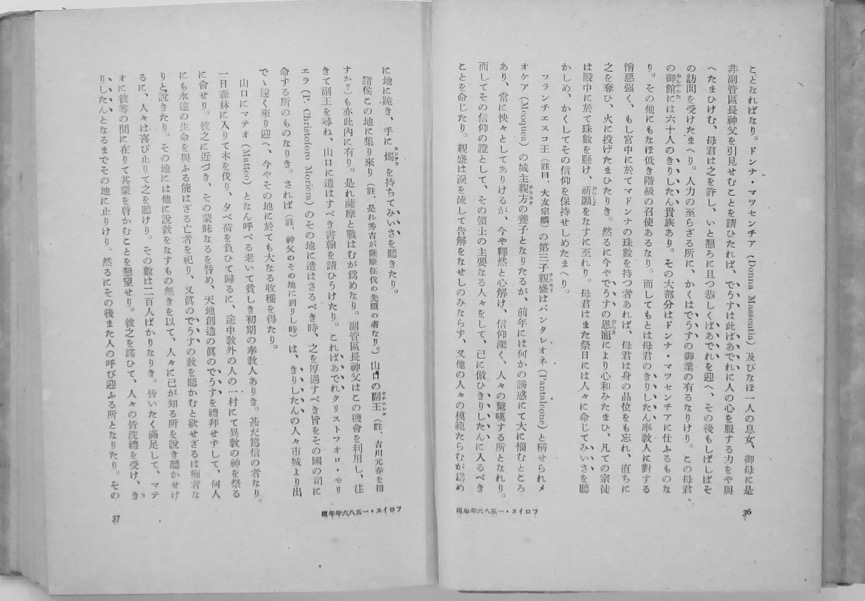 ことなればなり。ドンナ・マツセンチア (Donna Massentia) 及びなほ一人の息女、御母に是
非副管區長神父を引見せむことを請ひたれば、でうすは此ばあでれに人の心を服する力をや與
へたまひけむ、母君は之を許し、いと懇ろに且つ恭しくばあでれを迎へ、その後もしばしばそ
の訪問を受けたまへり。人力の至らざる所に、かくはでうすの御業の有るなりけり。この母君
の御館には六十人のきりしたん貴族あり。その大部分はドンナ・マツセンチアに仕ふるものな
り。その他にもなほ低き階級の召使あるなり。而してもとは母君のきりしたん奉教人に對する
憎惡強く、もし宮中に於てマドンナの珠數を持つ者あれば、母君は身の品位をも忘れ、直ちに
之を奪ひ、火に投げたまひたりき。然るに今やでうすの恩寵により心和みたまひ、凡ての宗徒
は殿中に於て珠數を懸け、祈願をなすに至れり。母君はまた祭日には人々に命じてみいさを聽
かしめ、かくしてその信仰を保持せしめたまへり。
フランチエスコ王（註曰、大友宗麟）の第三子親盛はパンタレオネ (Pantaleone) と稱せられメ
オケア (Meoquea) の城主親方の養子となりたるが、前年には何かの誘惑にて大に惱むところ
あり、常に怏々としてありけるが、今や釋然と心解け、信仰深く、人々の驚嘆する所となれり。
而してその信仰の證として、その領土の主要なる人々をして、己に倣ひきりしたんに入るべき
ことを命じたり。親盛は淚を流して告解をなせしのみならず、又他の人々の模範たらむが爲め
フロイス・一五八六年年報
36
に地に跪き、手に燭を持ちてみいさを聽きたり。
諸侯この地に集り來り（註、是れ秀吉が薩摩征伐の先陣の者なり。）山口の副王（註、吉川元春を指
すか？）も亦此内に有り。是れ薩摩と戰はむが爲めなり。副管區長神父はこの機會を利用し、往
きて副王を尋ね、山口に遣はすべき書翰を請ひうけたり。こればあでれクリストフオロ・モリ
エラ (P. Christoforo Moriera) のその地に遣はさるべき時、之を厚遇すべき旨をその國の司に
命ずる所のものなりき。されば（註、神父のその地に到りし時）は、きりしたんの人々市城より出
でゝ遠く來り迎へ、今やその地に於ても大なる收穫を得たり。
山口にマテオ (Matteo) となん呼べる老いて貧しき初期の奉教人ありき。甚だ篤信の者なり。
一日森林に入りて木を伐り、夕べ荷を負ひて歸るに、途中數外の人の一村にて異教の神を祭る
に會せり。彼之に近づき、その蒙昧なるを咎め、天地創造の眞のでうすを禮拜せずして、何人
にも永遠の生命を與ふる能はざる亡者を祀り、又眞のでうすの敎を聽かむと欲せざるは痴者な
りと說きたり。その地には他に說敎をなすもの無きを以て、人々に已が知る所を說き聽かせけ
るに、人々は喜び止りて之を聽けり。その數は二百人ばかりなりき。皆いたく滿足して、マテ
オに彼等の間に在りて其蒙を啓かむことを懇望せり。彼之を諾ひて、人々の皆洗禮を受け、き
りしたんとなるまでその地に止りけり。然るにその後また人の呼び迎ふる所となりたり。その
フロイス・一五八六年年報
37